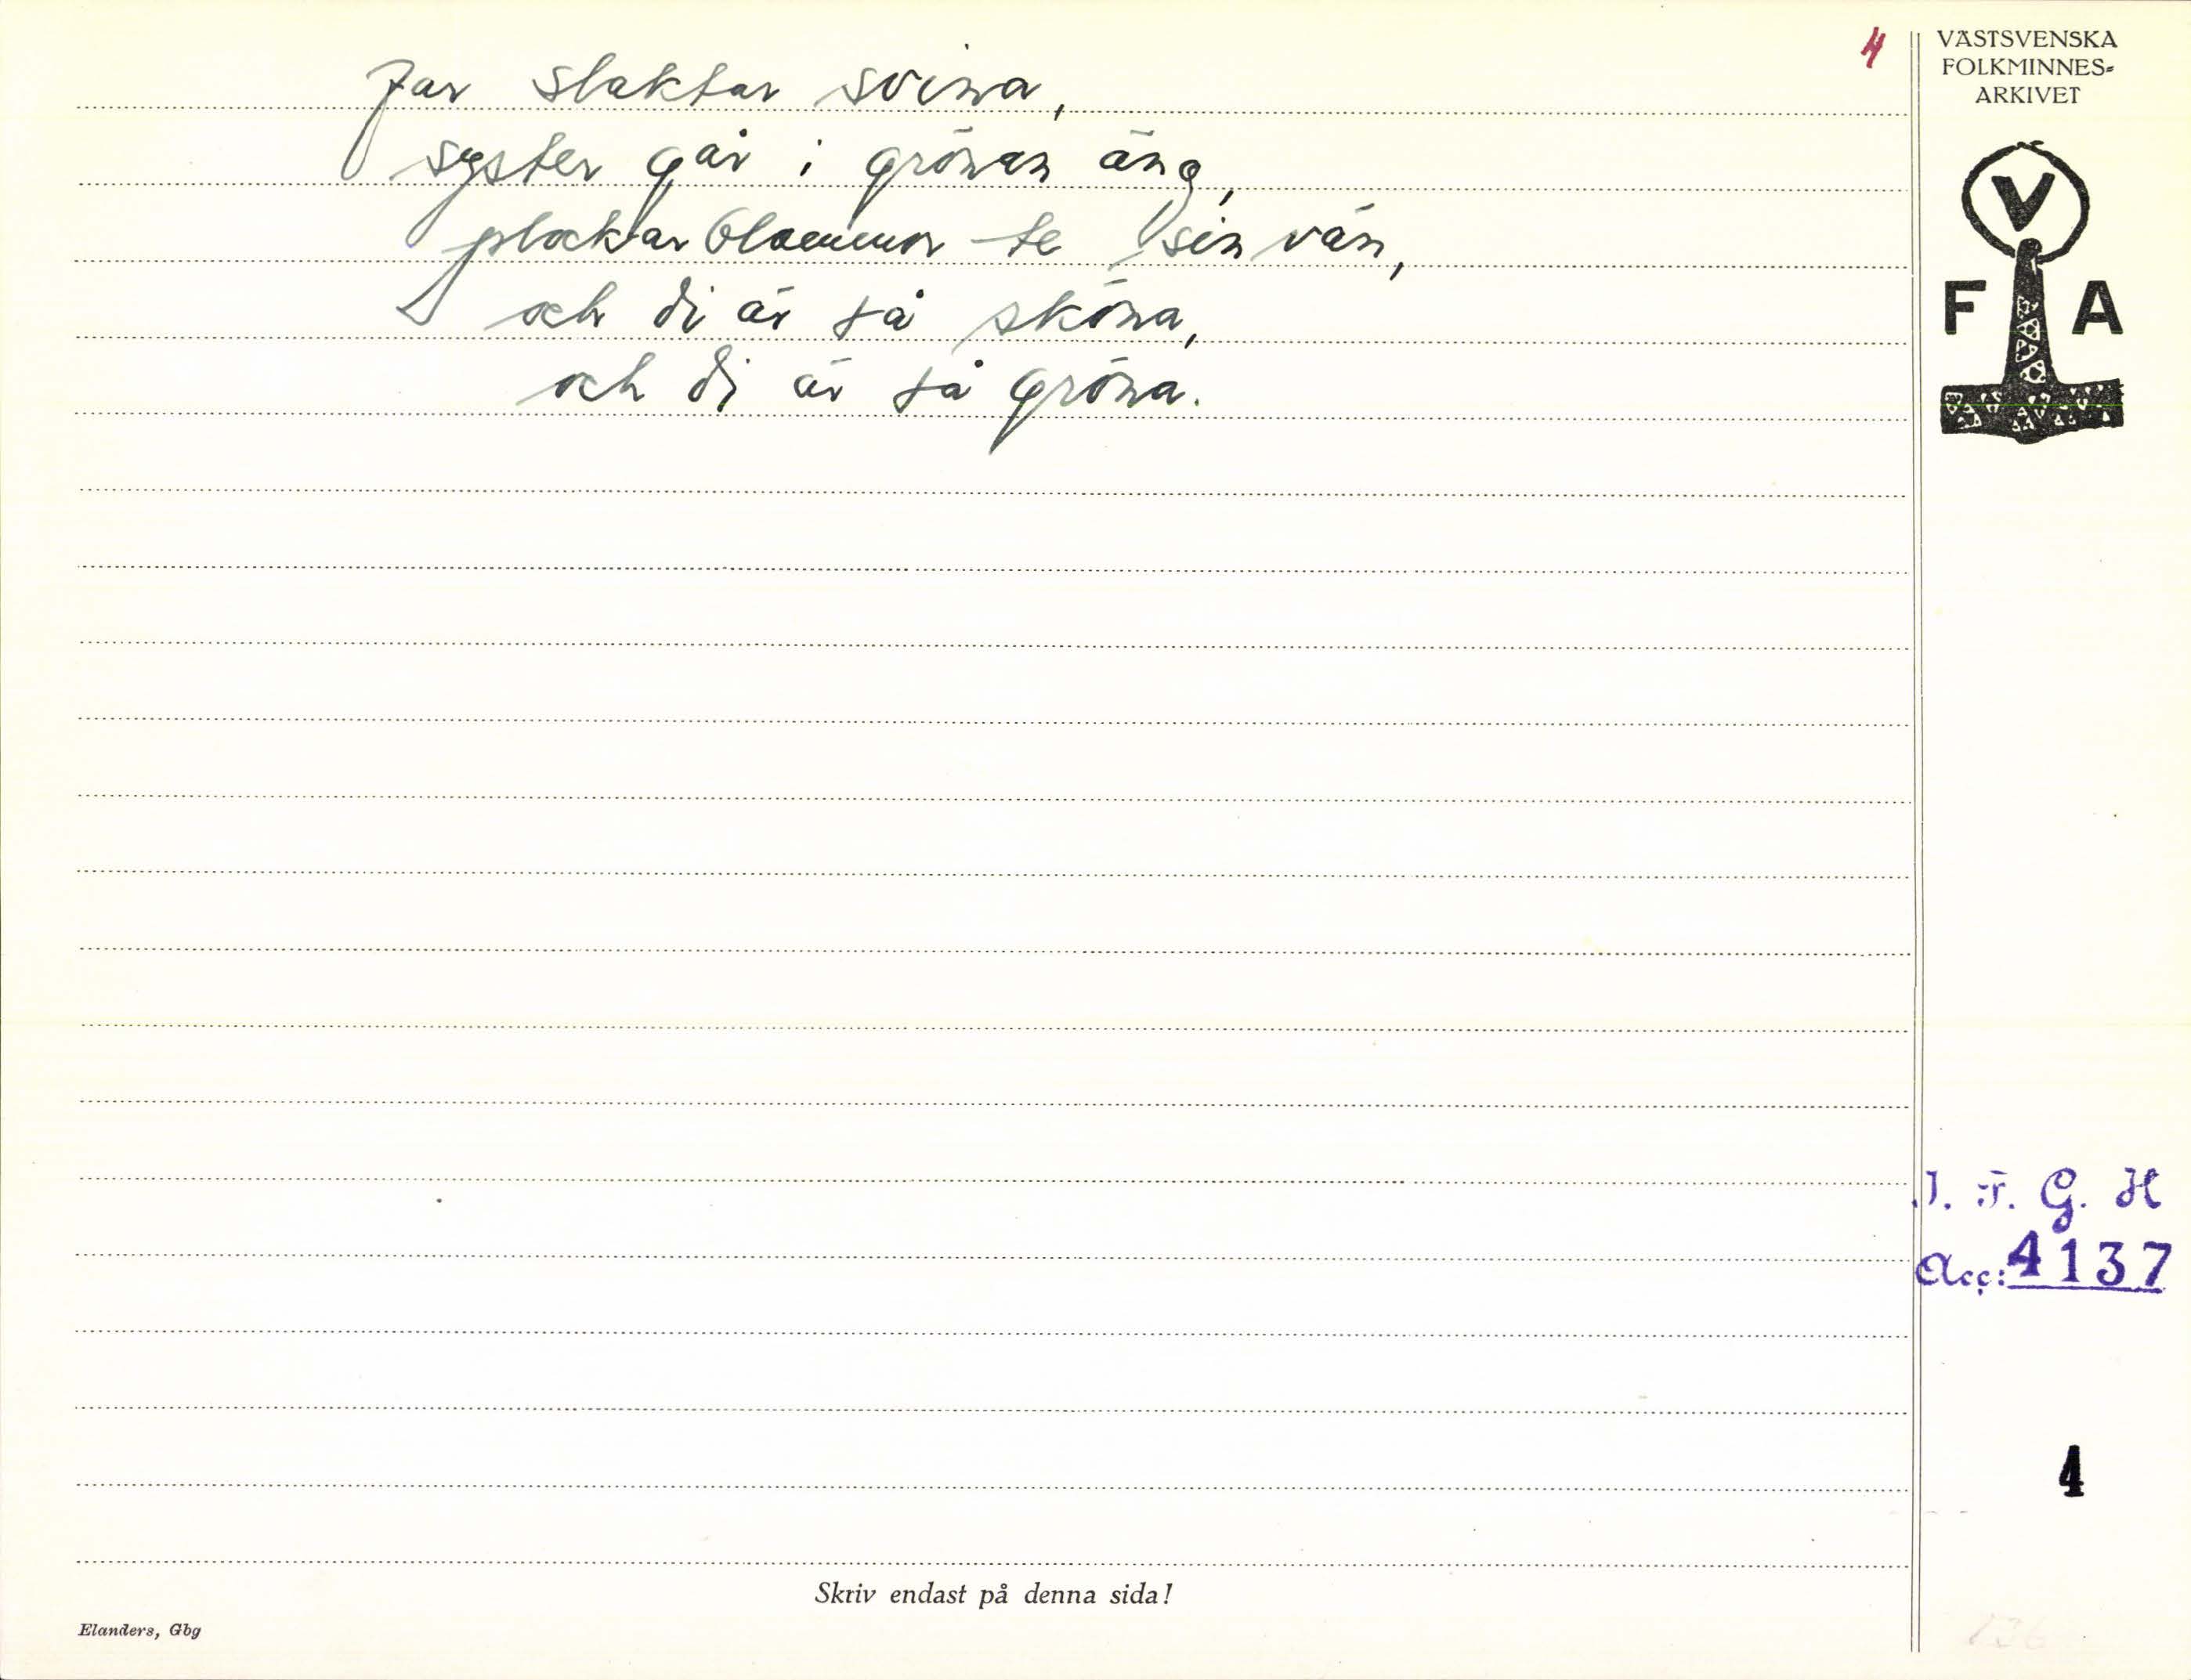 far slaktar svina,
syster går i grönan äng,
plockar blommor te sin vän,
och di är så sköna,
och di är så gröna.
4
VÄSTSVENSKA
FOLKMINNES-
ARKIVET
V
F A
I. F. G. H
Acc: 4137
4
Skriv endast på denna sida!
Elanders, Gbg